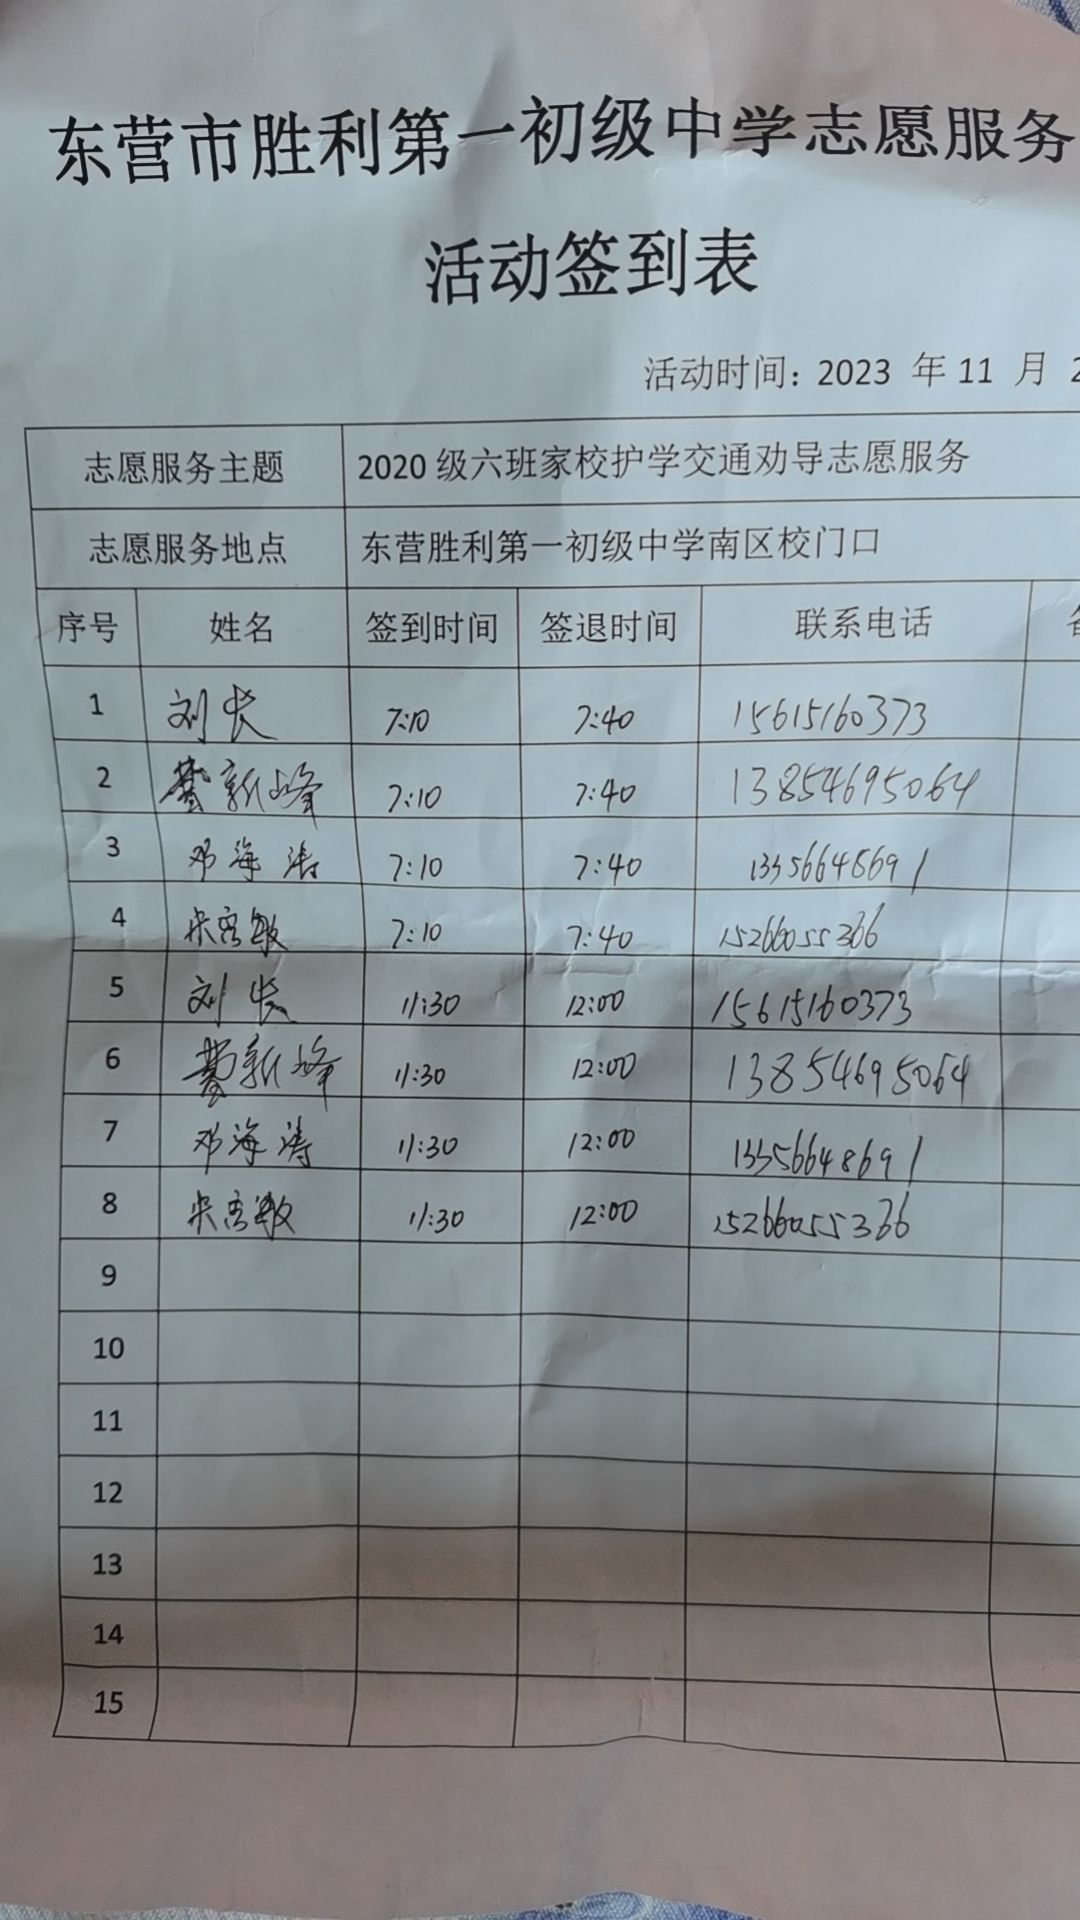 东营市胜利第一初级中学志愿服务
活动签到表
活动时间：2023 年 11 月 2
志愿服务主题 2020 级六班家校护学交通劝导志愿服务
志愿服务地点 东营胜利第一初级中学南区校门口
序号 姓名 签到时间 签退时间 联系电话
1 刘长 7:10 7:40 15615160373
2 新峰 7:10 7:40 13854695064
3 邓海涛 7:10 7:40 13356648691
4 宋秀敏 7:10 7:40 15266055366
5 刘长 11:30 12:00 15615160373
6 新峰 11:30 12:00 13854695064
7 邓海涛 11:30 12:00 13356648691
8 宋秀敏 11:30 12:00 15266055366
9
10
11
12
13
14
15